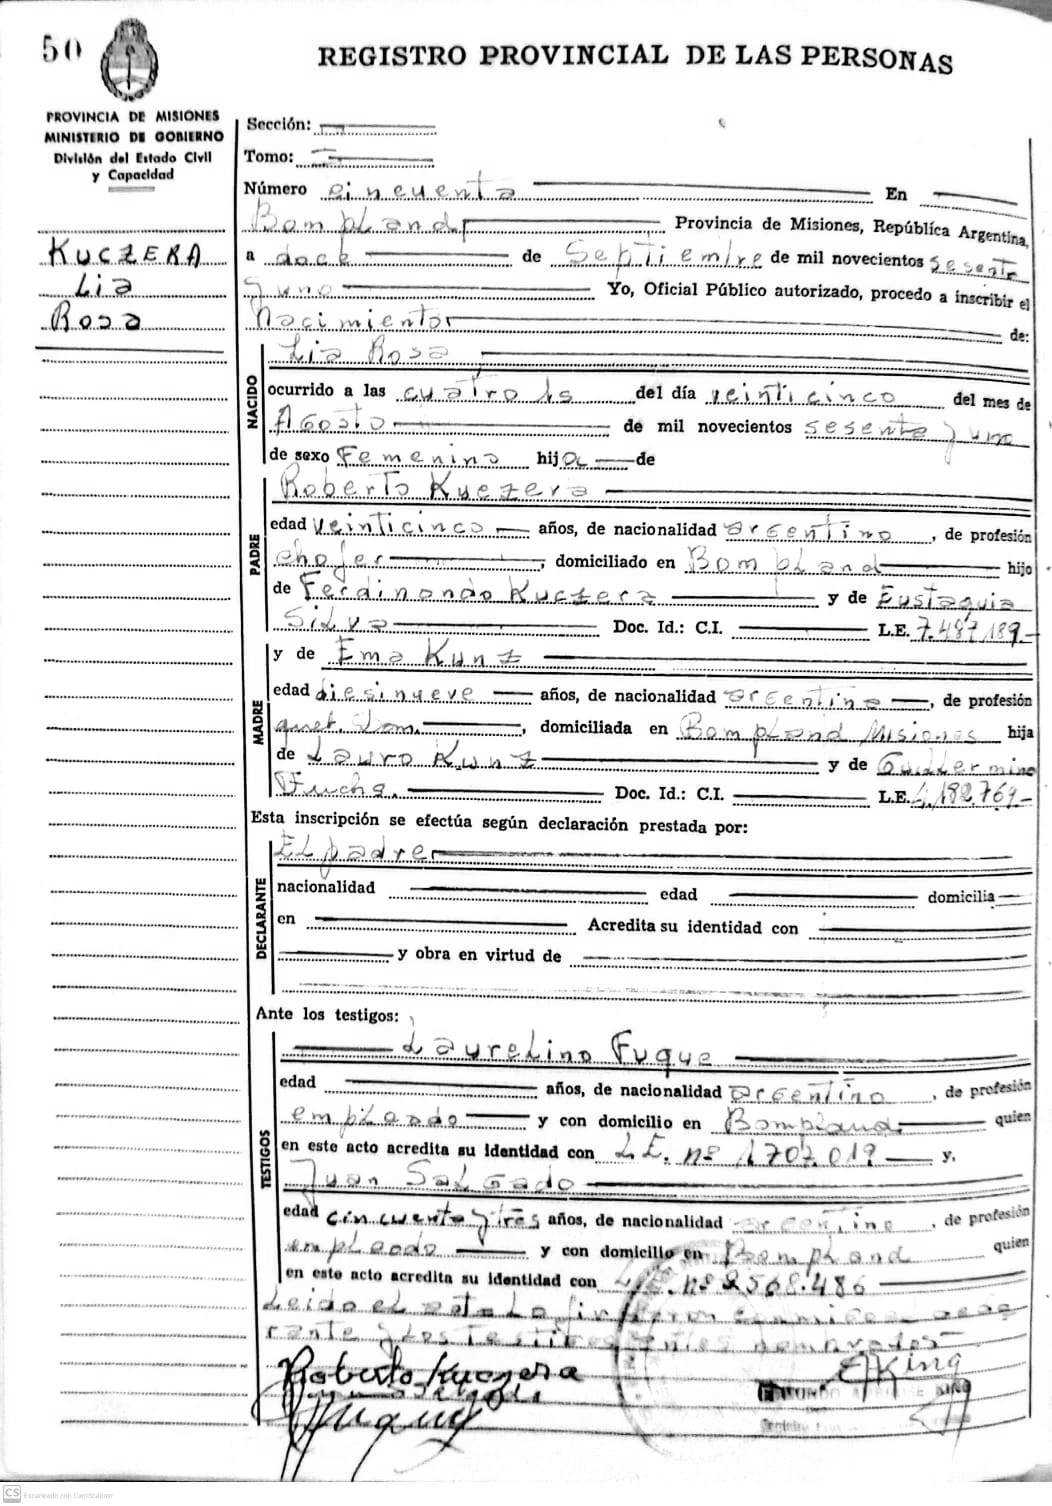 50
REGISTRO PROVINCIAL DE LAS PERSONAS
PROVINCIA DE MISIONES
MINISTERIO DE GOBIERNO
División del Estado Civil
y Capacidad
KUCZERA
Lia
Rosa
Sección:
Tomo:
Número cincuenta En
Bompland Provincia de Misiones, República Argentina,
a doce de Septiembre de mil novecientos sesenta
y uno Yo, Oficial Público autorizado, procedo a inscribir el
Nacimiento de:
NACIDO
Lia Rosa
ocurrido a las cuatro hs del día veinticinco del mes de
Agosto de mil novecientos sesenta y uno
de sexo Femenino hija de
PADRE
Roberto Kuczera
edad veinticinco años, de nacionalidad argentino, de profesión
chofer, domiciliado en Bompland hijo
de Ferdinando Kuczera y de Eustaquia
Silva Doc. Id.: C.I. L.E. 7.487.189
MADRE
y de Ema Kunz
edad diesinueve años, de nacionalidad argentina, de profesión
quet. Dom., domiciliada en Bompland Misiones hija
de Lauro Kunz y de Guillermina
Fuchs. Doc. Id.: C.I. L.E. 4.182.769
Esta inscripción se efectúa según declaración prestada por:
DECLARANTE
El padre
nacionalidad edad domicilia
en Acredita su identidad con
y obra en virtud de
Ante los testigos:
TESTIGOS
Laurelino Fuque
edad años, de nacionalidad argentino, de profesión
empleado y con domicilio en Bompland quien
en este acto acredita su identidad con L.E. nº 1707.019 y,
Juan Salgado
edad cincuenta y tres años, de nacionalidad argentino, de profesión
empleado y con domicilio en Bompland quien
en este acto acredita su identidad con L.E. nº 2568.486
Leida el acta la firman
rante y los testigos nombrados
Roberto Kuczera
EKing
KING
CS Escaneado con CamScanner